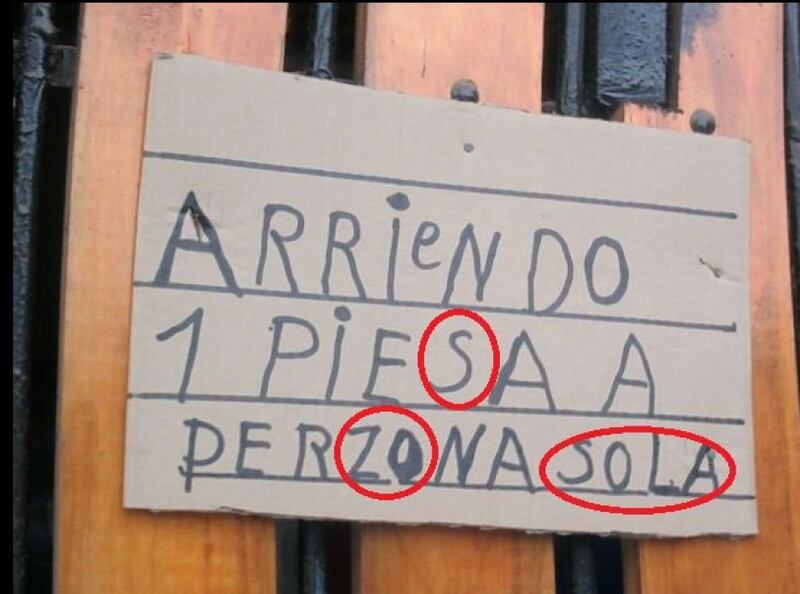 ARRieNDO
1 PiESA A
PERZONA SOLA